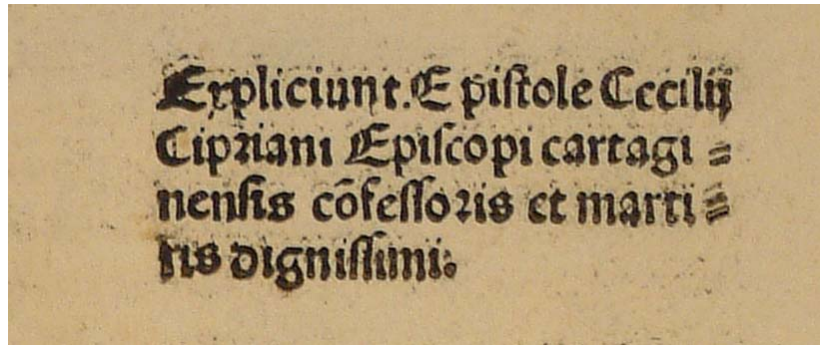 Expliciunt. Epistole Cecilij
Cipriani Episcopi cartagi=
nensis cōfessoris et marti=
ris dignissimi.